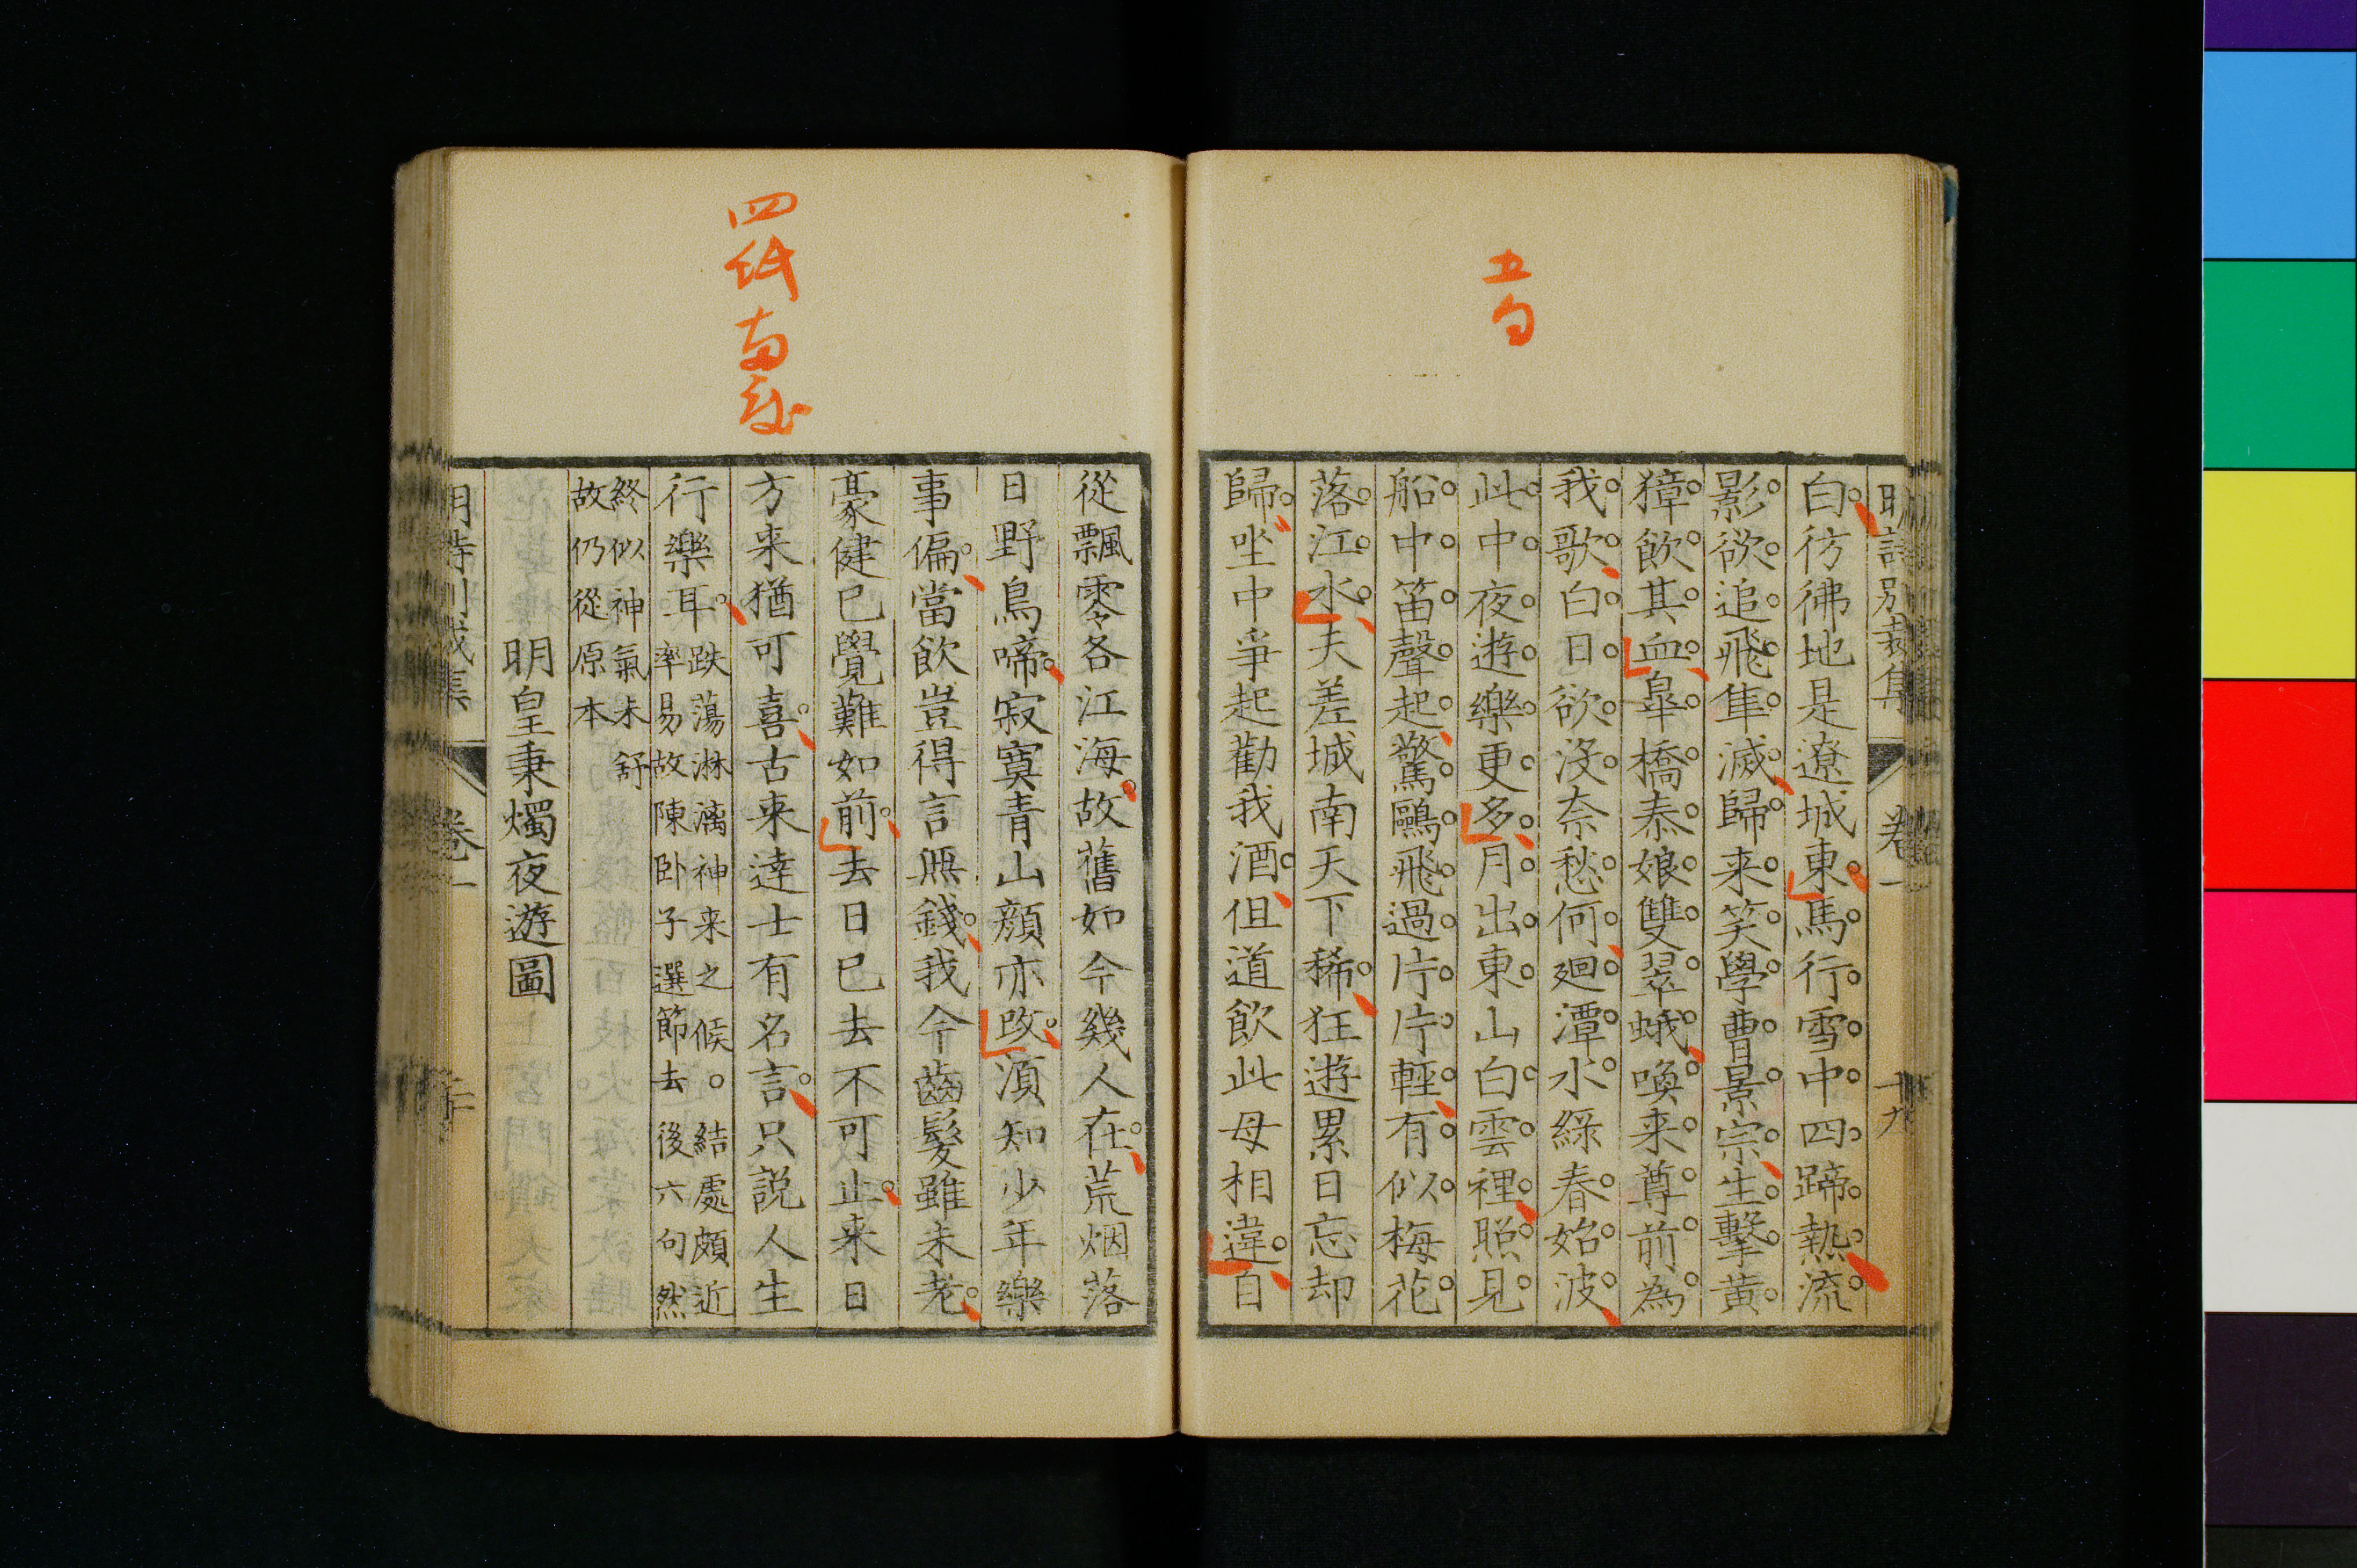 五句
明詩別裁集 卷一 十九
白彷彿地是遼城東馬行雪中四蹄熱流
影欲追飛隼滅歸来笑學曹景宗生擊黃
獐飲其血皐橋泰娘雙翠蛾喚来尊前為
我歌白日欲沒奈愁何廻潭水綠春始波
此中夜遊樂更多月出東山白雲裡照見
船中笛聲起驚鷗飛過片片輕有似梅花
落江水夫差城南天下稀狂遊累日忘却
歸坐中爭起勸我酒但道飲此母相違自
四紙
從飄零各江海故舊如今幾人在荒烟落
日野鳥啼寂寞青山顔亦改湏知少年樂
事偏當飲豈得言無錢我今齒髮雖未老
豪健已覺難如前去日已去不可止来日
方来猶可喜古来達士有名言只説人生
行樂耳
跌蕩淋漓神来之候。結處頗近
率易故陳卧子選節去後六句然
終似神氣未舒
故仍從原本
明皇秉燭夜遊圖
明詩別裁集 卷一